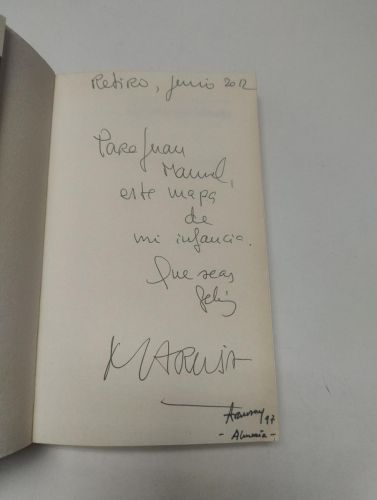 Retiro, Junio 2012
Para Juan
Manuel,
este mapa
de
mi infancia.
Que seas
feliz
97
- Almería -